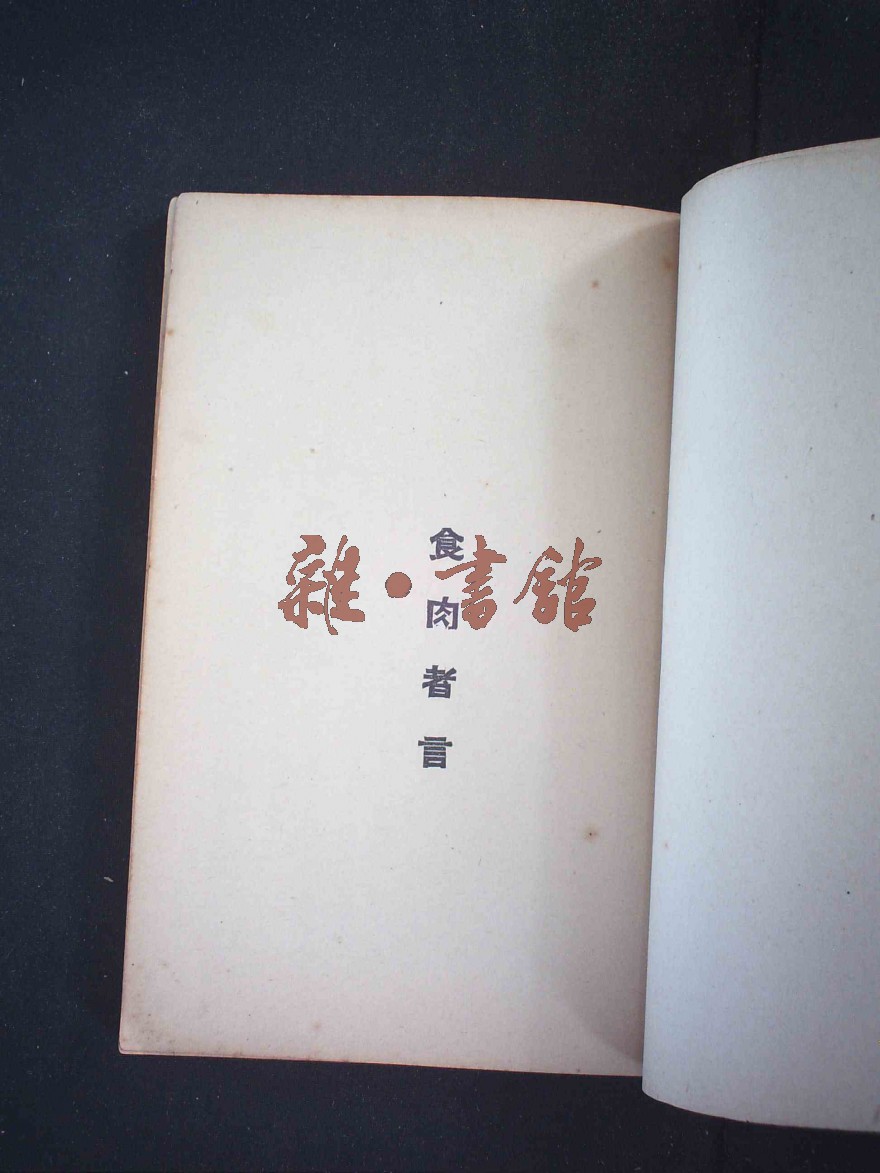 食肉者言
雜·書館